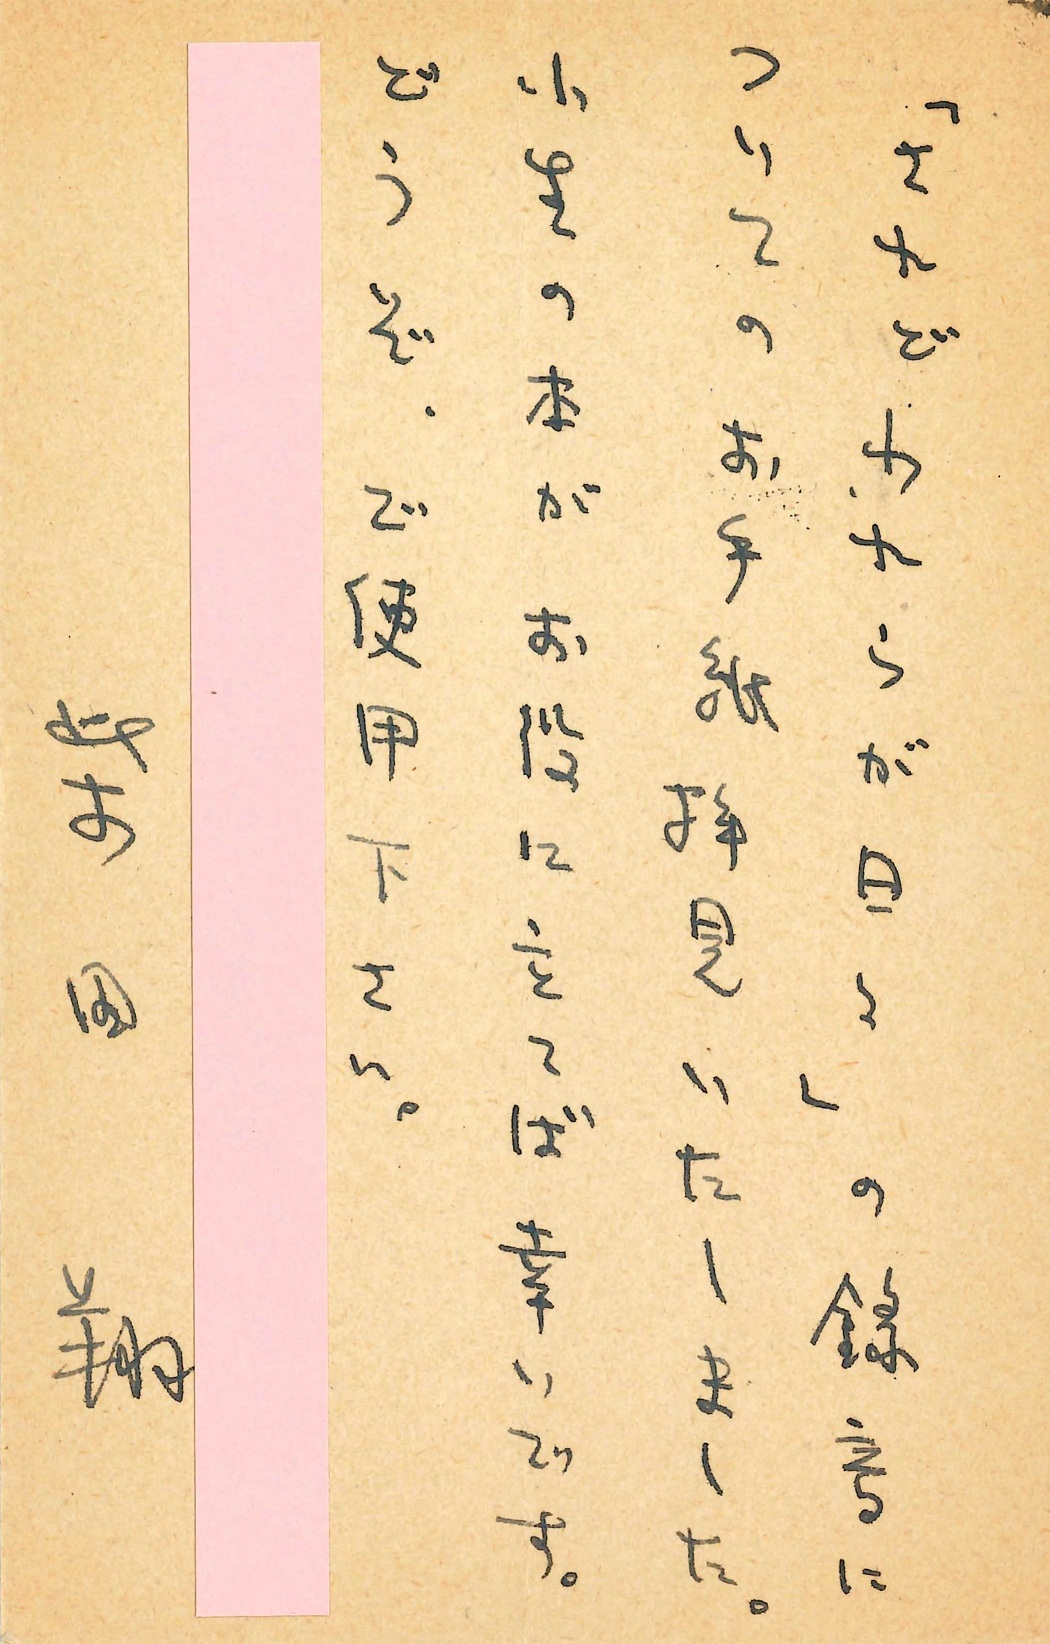 「されどわれらが日々」の録音に
ついてのお手紙拝見いたしました。
小生の本がお役に立てば幸いです。
どうぞ、ご使用下さい。
柴田 翔